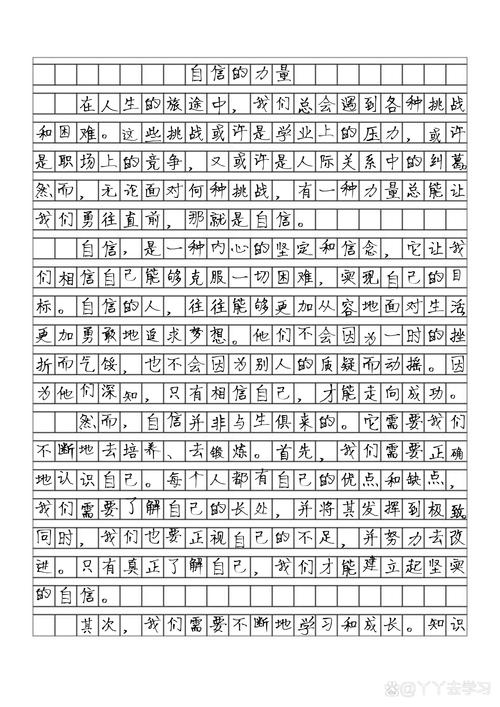 自信的力量
在人生的旅途中，我们总会遇到各种挑战
和困难。这些挑战或许是学业上的压力，或许
是职场上的竞争，又或许是人际关系中的纠葛
然而，无论面对何种挑战，有一种力量总能让
我们勇往直前，那就是自信。
自信，是一种内心的坚定和信念，它让我
们相信自己能够克服一切困难，实现自己的目
标。自信的人，往往能够更加从容地面对生活
更加勇敢地追求梦想。他们不会因为一时的挫
折而气馁，也不会因为别人的质疑而动摇。因
为他们深知，只有相信自己，才能走向成功。
然而，自信并非与生俱来的。它需要我们
不断地去培养、去锻炼。首先，我们需要正确
地认识自己。每个人都有自己的优点和缺点，
我们需要了解自己的长处，并将其发挥到极致。
同时，我们也要正视自己的不足，并努力去改
进。只有真正了解自己，我们才能建立起坚实
的自信。
其次，我们需要不断地学习和成长。知识
@丫丫去学习